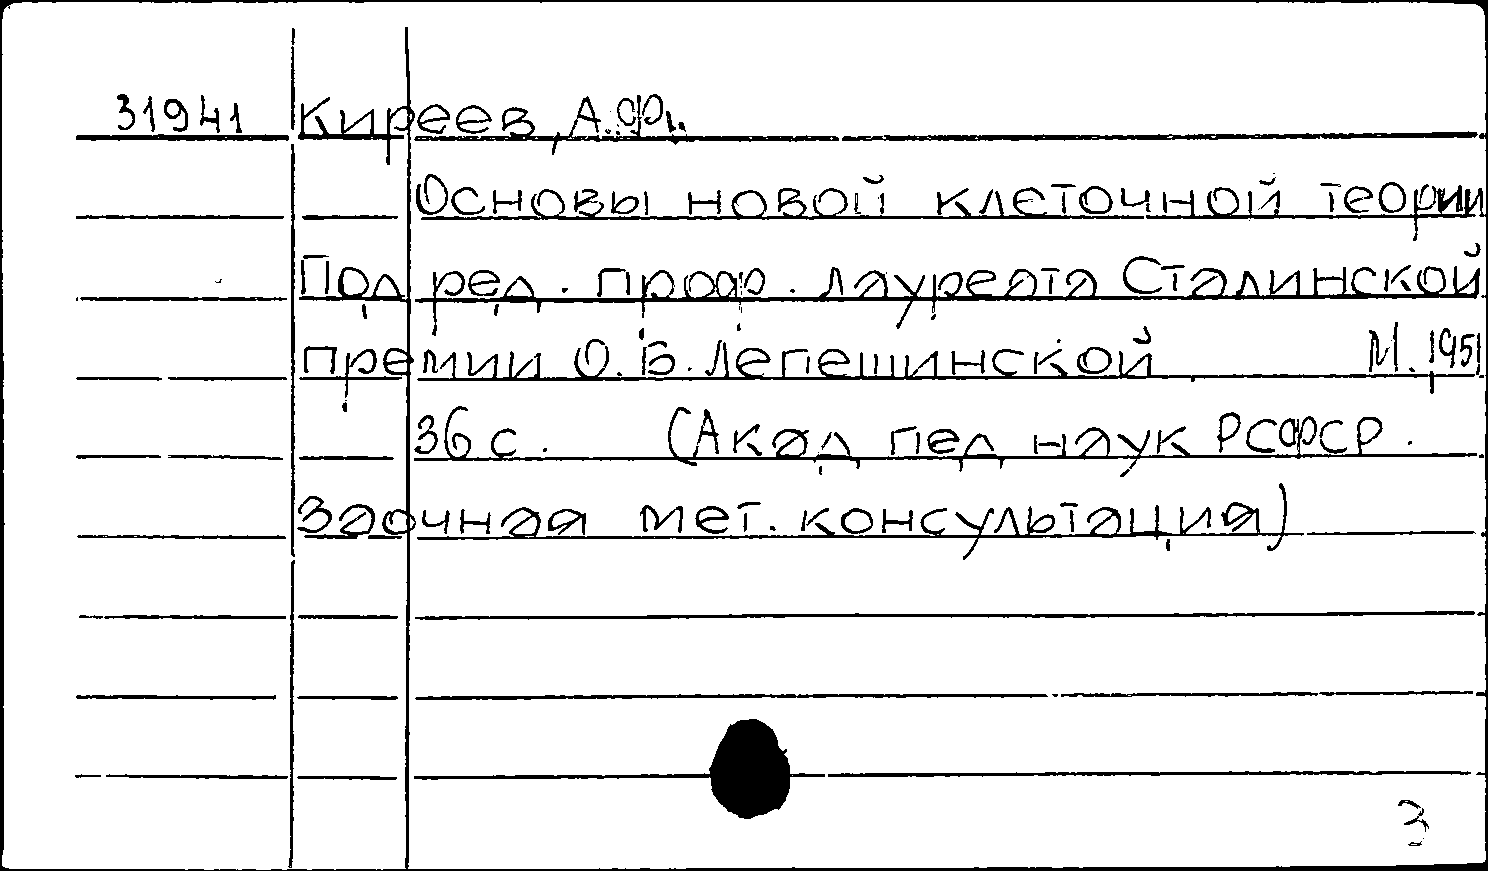 31941 Киреев, А.Ф.
Основы новой клеточной теории
Под ред. проф. лауреата Сталинской
премии О.Б. Лепешинской М. 1951
36 с. (Акад пед наук РСФСР.
Заочная мет. консультация)
3